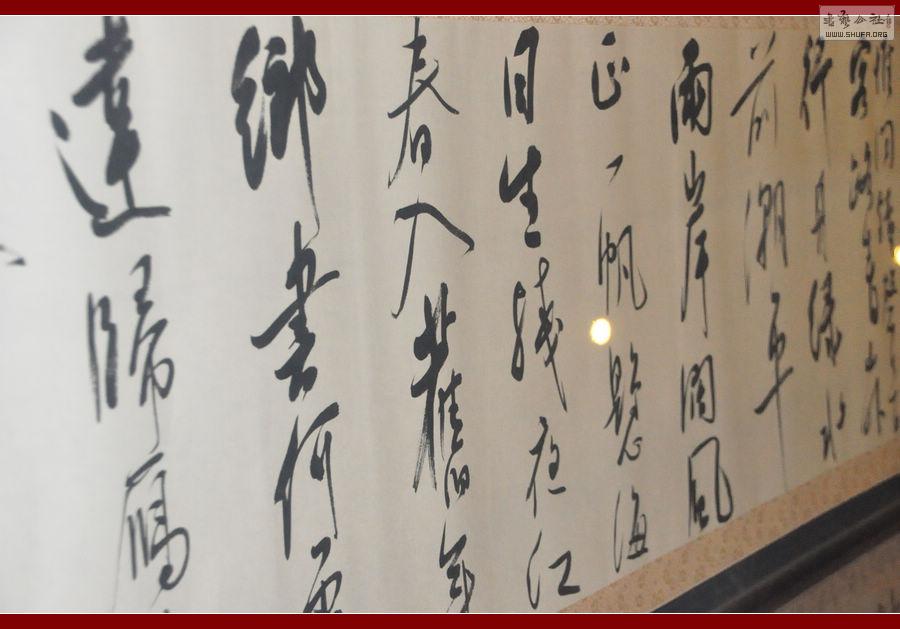 客路青山外
行舟綠水
前潮平
兩岸闊風
正一帆懸海
日生殘夜江
春入舊年
鄉書何
達歸鴈
WWW.SHUFA.ORG